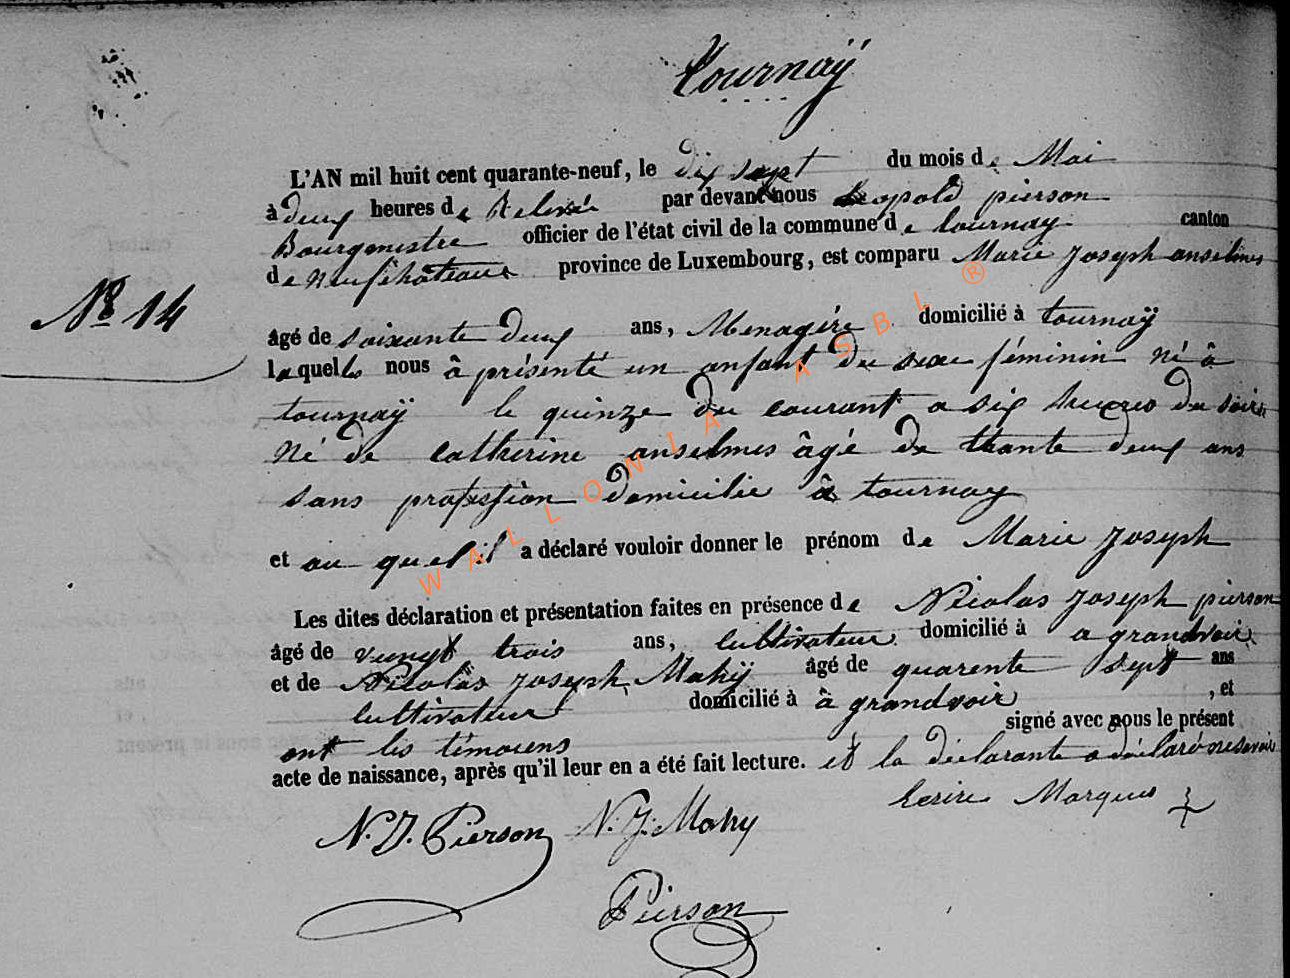 Tournaÿ
L'AN mil huit cent quarante-neuf, le dix sept du mois de Mai
à deux heures de Relevée par devant nous Leopold pierson
Bourgmestre officier de l'état civil de la commune de tournay canton
de neufchâteau province de Luxembourg, est comparu Marie Joseph anselmes
N° 14
âgé de soixante deux ans, Menagère domicilié à tournaÿ
laquelle nous â présenté un enfant du sexe féminin né â
tournaÿ le quinze du courant a six heures du soir
né de catherine anselmes âgé de trante deux ans
sans profession domicilie â tournay
et au quel il a déclaré vouloir donner le prénom de Marie Joseph
Les dites déclaration et présentation faites en présence de Nicolas Joseph pierson
âgé de vungt trois ans, cultivateur domicilié à a grandvoir
et de Nicolas Joseph Mahÿ âgé de quarente sept ans
cultivateur domicilié à â grandvoir , et
ont les témoiens signé avec nous le présent
acte de naissance, après qu'il leur en a été fait lecture. et la déclarante a déclaré ne savoir
Ecrire
N. J. Pierson N. J. Mahy
Pierson
WALLONIA ASBL ®